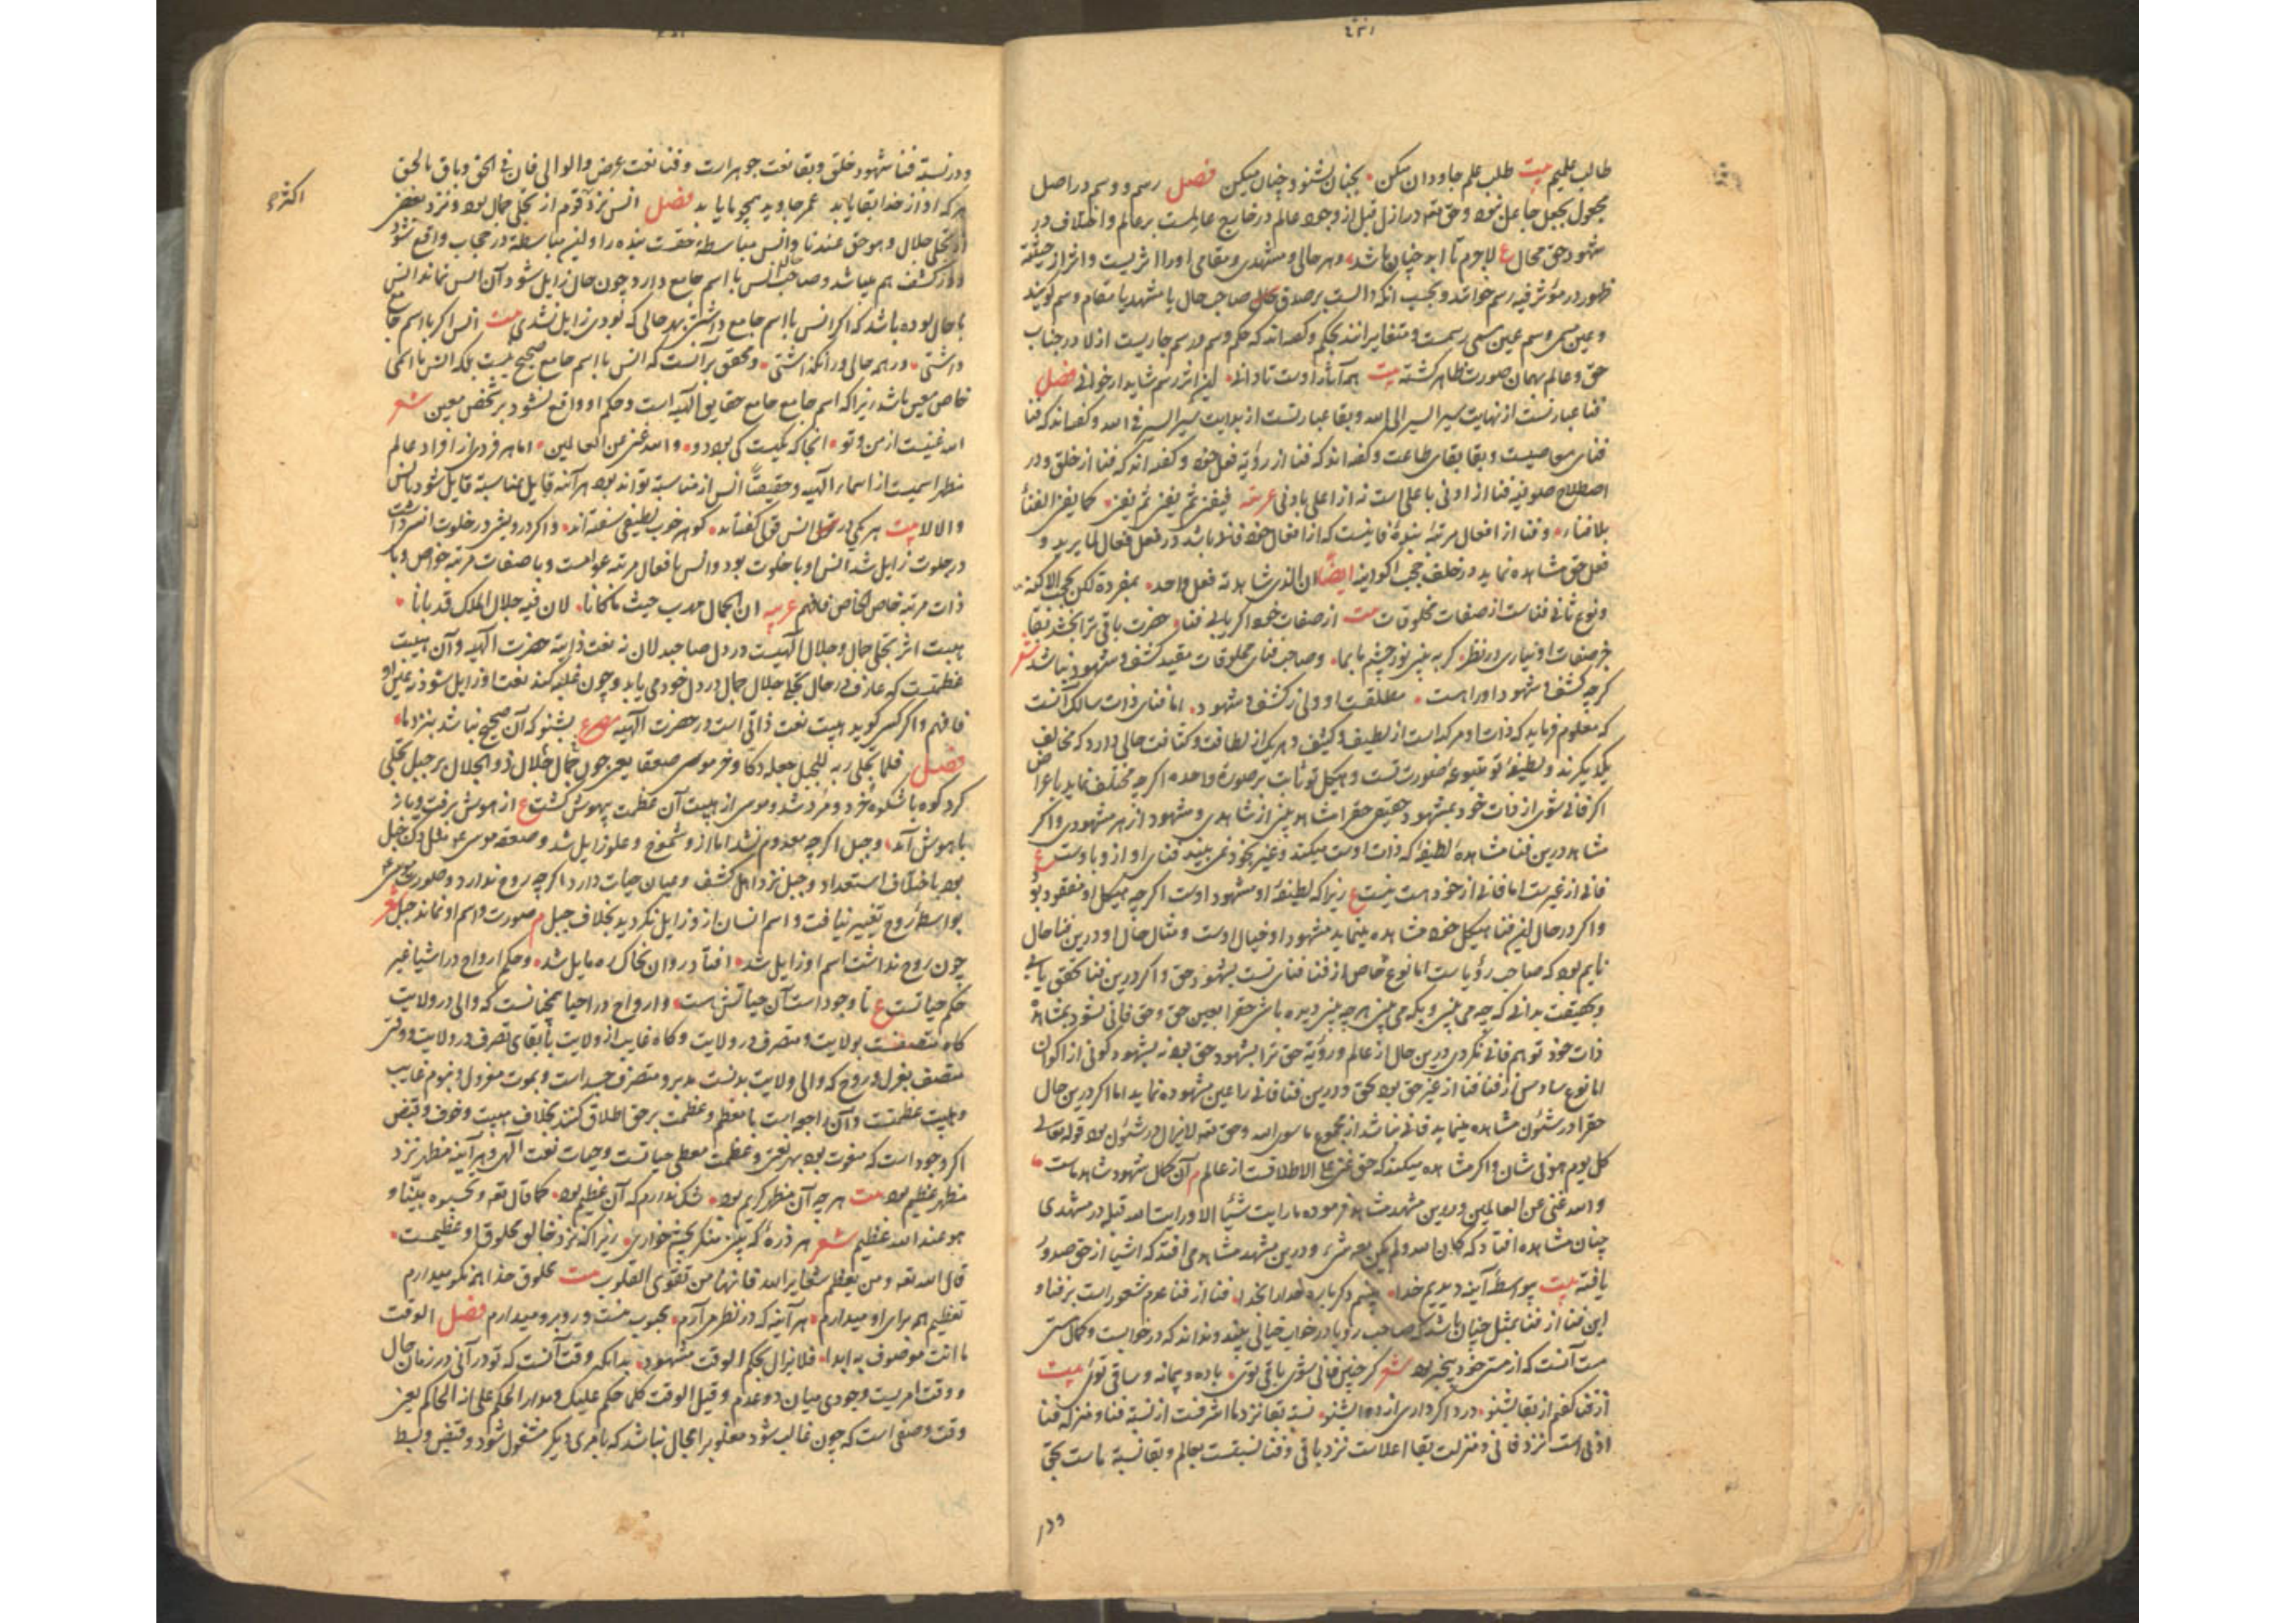 طالب علمیم بیت طلب علم جاودان میکن بجنان بشنو و چنان میکن فصل رسم و وسم در اصل
مجعول بجعل جاعل نبود و حق تعه در ازل قبل از وجود عالم در خارج عالمست بر عالم و اختلاف در
شهود حق محال ع لاجرم تا ابد چنان باشد وهر حالی و مشهدی و مقامی اورا اثریست و اثر از حیثیة
ظهور در مؤثر فیه رسم خوانند و بحسب انکه دالست بر صدق حال صاحب حال یا مشهد یا مقام وسم گویند
وعین مسمی وسم عین مسمی رسمست و متغایرانند بحکم و گفته اند که حکم وسم و رسم جاریست ازلا در جناب
حق و عالم بهمان صورت ظاهر گشته بیت همه آثار اوست تا دانی این اثر رسم شاید ار خوانی فصل
فنا عبارتست از نهایت سیر السیر الی الله و بقا عبارتست از بدایت سیر السیر فی الله و گفته اند که فنا
فنای معاصیست و بقا بقای طاعت و گفته اند که فنا از رؤیة فعل خود و گفته اند که فنا از خلق و در
اصطلاح صوفیه فنا از ادنی باعلی است نه از اعلی بادنی عربیه فیفنی ثم یفنی ثم یفنی کما یفنی الفناء
بلا فناء و فنا از افعال مرتبه بنده فانیست که از افعال خود فانی باشد در فعل فعال لما یرید و
فعل حق مشاهده نماید در خلف حجب اکوانیه ایضا ان الذی شاهدته فعل واحد بمفرده لکن بحجب الاکنه
ونوع ثانی فناست از صفات مخلوقات بیت از صفات خود اگر یابی فنا حضرت باقی ترا بخشد بقا
جز صفات او نیاری در نظر گر ببینی نور چشم ما بما و صاحب فنای مخلوقات مقید کشف و شهود نباشد شعر
گرچه کشف و شهود اورا هست مطلقست او ولی ز کشف و شهود اما فنای ذات سالک آنست
که معلوم فرماید که ذات او مرکب است از لطیف و کثیف و هر یک از لطافت و کثافت حالی دارد که مخالف
یکدیگرند و لطیفه تو متبوعه صورت تست و هیکل تو ثابت بر صورة واحده اگرچه مختلف نماید باعراض
اگر فانی شوی از ذات خود بمشهود حقیقی حقرا مشاهد بینی از شاهدی و مشهود از هر مشهودی و اگر
مشاهد درین فنا مشاهده لطیفه که ذات اوست میکند و غیر بخود نمی بیند فنای او ازو با اوست ع
فانی از غیرست اما فانی از خود هست نیست ع زیرا که لطیفه او مشهود اوست اگرچه هیکل او مفقود بود
واگر در حال این فنا هیکل خود مشاهده مینماید مشهود او خیال اوست و مثال حال او درین فنا حال
نایم بود که صاحب رؤیاست اما نوع خاص از فنا فنای تست بشهود حق و اگر درین فنا تحقق یابی
و بحقیقت بدانی که چه می بینی و بکه می بینی هرچه بینی دیده باشی حقرا بعین حق و حق فانی نشود بمشاهده
ذات خود تو هم فانی نگردی درین حال از عالم و رؤیة حق ترا بشهود حق بود نه بشهود کونی از اکوان
اما نوع سادس از فنا فنا از غیر حق بود بحق و درین فنا فانی را عین مشهوده نماید اما اگر درین حال
حقرا در شئون مشاهده مینماید فانی نباشد از مجموع ما سوی الله وحق تعه لایزال در شئون بود قوله تعالی
کل یوم هو فی شان واگر مشاهده میکند که حق غنی علی الاطلاقست از عالم م آن کمال شهود شاهد ماست
والله غنی عن العالمین و درین مشهد مشاهد فرموده ما رایت شیئا الا ورایت الله قبله در مشهدی
چنان مشاهده افتاد که کان الله ولم یکن معه شیء و درین مشهد مشاهد می افتد که اشیا از حق صدور
یافته بیت بواسطه آینه دیدیم خدا بینیم دگرباره خدارا بخدا فنا از فنا عدم شعور است بر فنا و
این فنا از فنا بمثل چنان باشد که صاحب رؤیا در خواب خیالی بیند و نداند که در خوابست و کمال مستی
مست آنست که از مستی خود بیخبر بود شعر گر چنین فانی شوی باقی توی باده و پیمانه و ساقی توی بیت
از فنا گفتم از بقا بشنو درد اگر داری از دوا بشنو نسبة بقا نزد ما اشرفست از نسبة فنا و منزله فنا
ادنی است نزد فانی و منزلت بقا اعلاست نزد باقی و فنا نسبتست بعالم و بقا نسبة ماست بحق
ودر
ودر نسبة فنا شهود خلق و بقا نعت جوهرارت و فنا نعت عرض والوالی فان فی الحق وباق بالحق
هرکه او از خدا بقا یابد عمر جاوید همچو ما یابد فصل انس نزد قوم از تجلی جمال بود و نزد بعضی
اکثره
از تجلی جلال وهو حق عندنا وانس مباسطة حقست بنده را و این مباسطة در حجاب واقع شود
ودر کشف هم میباشد و صاحب انس با اسم جامع دارد چون حال زایل شود آن انس نماند انس
با حال بوده باشد که اگر انس با اسم جامع داشتی بهر حالی که بودی زایل نشدی بیت انس اگر با اسم جامع
داشتی در همه حالی ورا نگذاشتی و محقق بر آنست که انس با اسم جامع صحیح نیست بلکه انس با اسمی
خاص معین باشد زیرا که اسم جامع جامع حقایق الهیه است و حکم او واقع نشود بر شخص معین شعر
الله غنیست از من و تو انجا که یکیست کی بود دو والله غنی عن العالمین اما هر فردی از افراد عالم
مظهر اسمیست از اسماء الهیه و حقیقة انس از مناسبة تواند بود هر آینه قایل بمناسبة قایل شود بانس
والا لا بیت هر یکی در انس قولی گفته اند گوهر خوب لطیفی سفته اند ذاکر درویش در خلوت انس داشت
در جلوت زایل شد انس او با خلوت بود وانس بافعال مرتبه عوامست و با صفات مرتبه خواص و با
ذات مرتبه خاص الخاص فافهم عربیه ان الجمال مهوب حیث ما کانا لان فیه جلال الملک قد بانا
هیبت اثر تجلی جمال وجلال الهیست در دل صاحبدلان نه نعت ذاتیة حضرت الهیه و آن هیبت
عظمتیست که عارف در حال تجلی جلال جمال در دل خود می یابد و چون غلبه کند نعت او زایل شود نه عین او
فافهم واگر کسی گوید هیبت نعت ذاتی است در حضرت الهیه مصرع بشنو که آن صحیح نباشد بنزد ما
فصل فلما تجلی ربه للجبل جعله دکا وخر موسی صعقا یعنی چون جمال جلال ذو الجلال بر جبل تجلی
کرد کوه باشکوه خرد و مرد شد و موسی از هیبت آن عظمت بیهوش گشت ع از هوش برفت و باز
باهوش آمد وجبل اگرچه معدوم نشد اما ازو شموخ و علو زایل شد و صعقه موسی عم مثل دک جبل
بود باختلاف استعداد وجبل نزد اهل کشف وعیان حیات دارد اگرچه روح ندارد و صورت موسی
بواسطه روح تغییر نیافت و اسم انسان ازو زایل نگردید بخلاف جبل م صورت و اسم او نماند جبل شعر
چون روح نداشت اسم او زایل شد افتاد روان بخاک ره مایل شد و حکم ارواح در اشیا غیر
حکم حیاتست ع تا وجود است آن حیاتش است و ارواح در احیا همچنانست که والی در ولایت
گاه متصفست بولایت و متصرف در ولایت و گاه غایب از ولایت بابقای تصرف در ولایت و وقتی
متصف بعزل و روح که والی ولایت بدنست مدبر و متصرف جسد است و بموت معزول و بنوم غایب
وهیبت عظمتست و آن راجع است با معظم و عظمت بر حق اطلاق کنند بخلاف هیبت و خوف و قبض
اگر وجود است که منعوت بود بهر نعتی و عظمت معطی حیاتست و حیات نعت الهی و هر آینه مظهر نزد
مظهر عظیم بود بیت هرچه آن مظهر کریم بود شک ندارم که آن عظیم بود کما قال تعه وتحسبونه هینا و
هو عند الله عظیم شعر هر ذره که بینی منگر بچشم خواری زیرا که نزد خالق مخلوق او عظیمست
قال الله تعه ومن یعظم شعایر الله فانها من تقوی القلوب بیت مخلوق خدا همه نکو میدارم
تعظیم همه برای او میدارم هر آینه که در نظر می آرم محبوب منست و روبرو میدارم فصل الوقت
ما انت موصوف به ابدا فلا تزال بحکم الوقت مشهودا بدانکه وقت آنست که تو در آنی در زمان حال
و وقت امریست وجودی میان دو عدم وقیل الوقت کلما حکم علیک ومدار الحکم علی انه الحاکم یعنی
وقت وصفی است که چون غالب شود مغلوبرا مجال نباشد که بامری دیگر مشغول شود و قبض و بسط